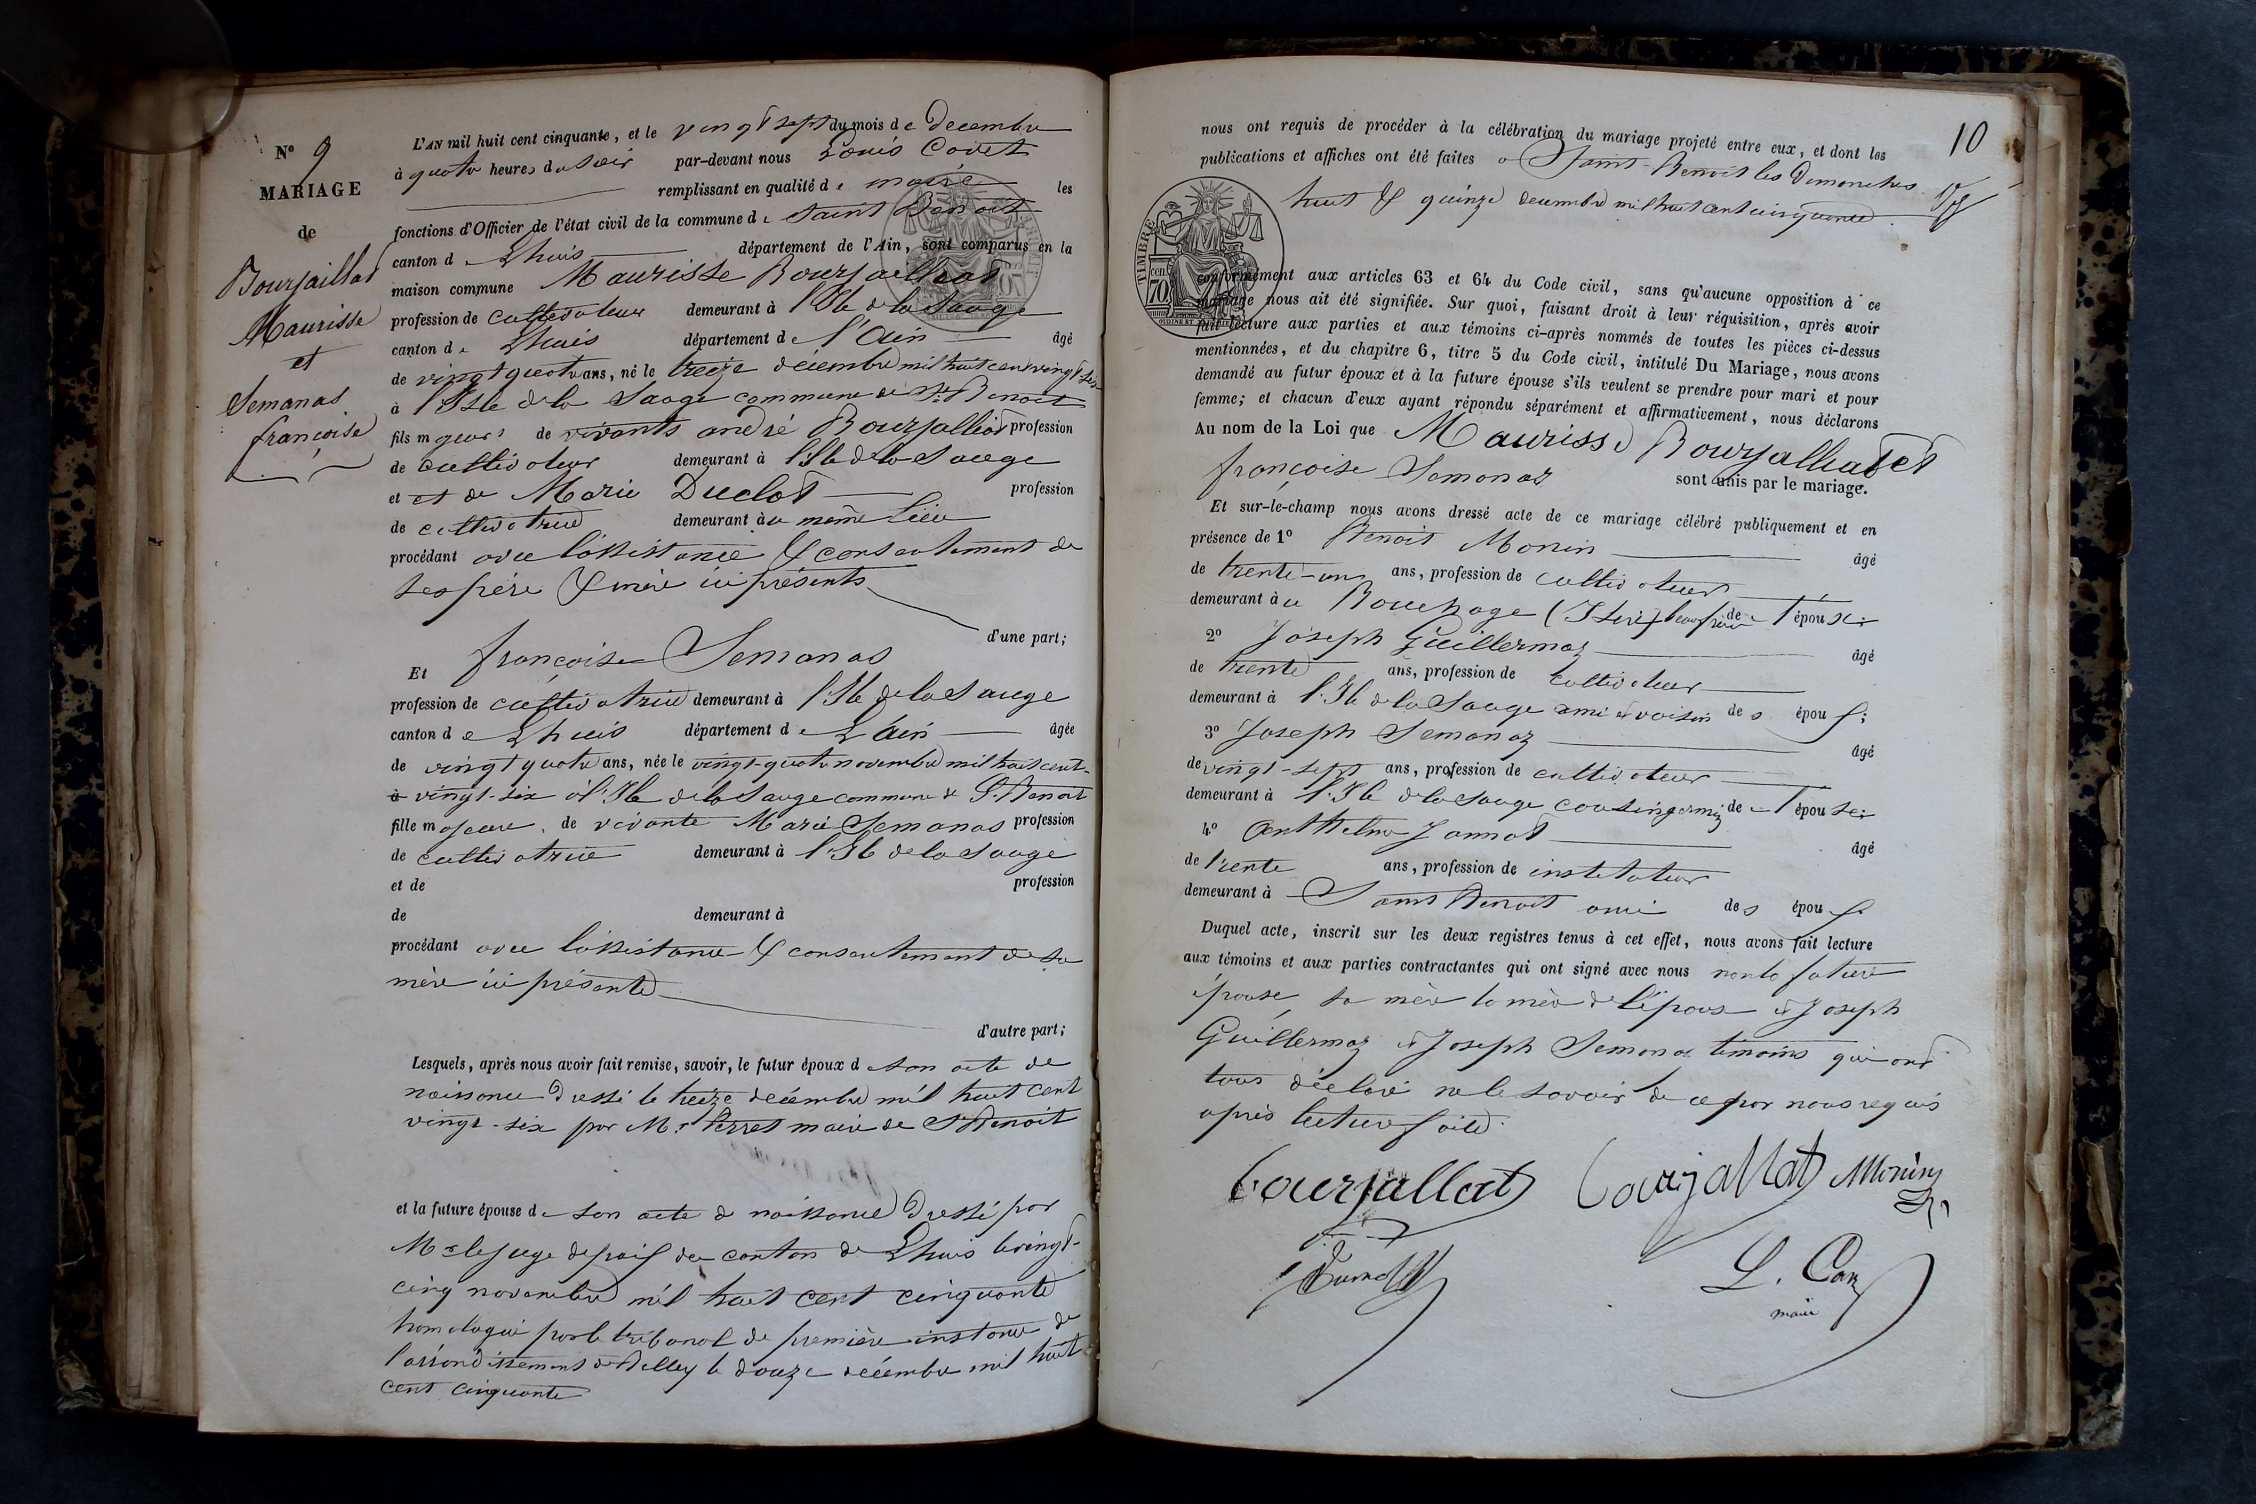 N° 9
MARIAGE
de
Bourjaillat
Maurisse
et
Semanas
françoise
L'AN mil huit cent cinquante, et le vingt sept du mois de Decembre
à quatre heures du soir par-devant nous Louis Covet
remplissant en qualité de maire les
fonctions d'Officier de l'état civil de la commune de Saint Benoit
canton de Lhuis département de l'Ain, sont comparus en la
maison commune Maurisse Bourjaillat
profession de cultivateur demeurant à l'Ile de la Sauge
canton de Lhuis département de l'Ain âgé
de vingt quatre ans, né le treize décembre mil huit cent vingt six
à l'Isle de la Sauge commune de St Benoit
fils majeur de vivants andré Bourjalliat profession
de cultivateur demeurant à l'Ile de la Sauge
et et de Marie Duclot profession
de cultivatrice demeurant au même lieu
procédant avec l'assistance & consentement de
ses père & mère ici présents
d'une part;
Et françoise Semanas
profession de cultivatrice demeurant à l'Ile de la Sauge
canton de Lhuis département de L'ain âgée
de vingt quatre ans, née le vingt-quatre novembre mil huit cent-
à vingt-six à l'Ile de la Sauge commune de St Benoit
fille majeure de vivante Marie Semanas profession
de cultivatrice demeurant à l'Ile de la Sauge
et de profession
de demeurant à
procédant avec l'assistance & consentement de sa
mère ici présente
d'autre part;
Lesquels, après nous avoir fait remise, savoir, le futur époux de son acte de
naissance Dressé le treize décembre mil huit cent
vingt-six par Mr Perret maire de St Benoit
et la future épouse de son acte de naissance Dressé par
Mr le juge de paix du canton de Lhuis le vingt-
cinq novembre mil huit cent cinquante
homologué par le tribunal de première instance de
l'arrondissement de Belley le douze décembre mil huit
cent cinquante
10
nous ont requis de procéder à la célébration du mariage projeté entre eux, et dont les
publications et affiches ont été faites a Saint-Benoit les Dimanches
huit & quinze decembre mil huit cent cinquante
TIMBRE
70
conformément aux articles 63 et 64 du Code civil, sans qu'aucune opposition à ce
mariage nous ait été signifiée. Sur quoi, faisant droit à leur réquisition, après avoir
fait lecture aux parties et aux témoins ci-après nommés de toutes les pièces ci-dessus
mentionnées, et du chapitre 6, titre 5 du Code civil, intitulé Du Mariage, nous avons
demandé au futur époux et à la future épouse s'ils veulent se prendre pour mari et pour
femme; et chacun d'eux ayant répondu séparément et affirmativement, nous déclarons
Au nom de la Loi que Maurisse Bourjalliat et
françoise Semanas sont unis par le mariage.
Et sur-le-champ nous avons dressé acte de ce mariage célébré publiquement et en
présence de 1° Benoit Monin âgé
de trente-un ans, profession de cultivateur
demeurant au Bouchage (Isère) beau frère de l'époux;
2° Joseph Guillermaz âgé
de trente ans, profession de cultivateur
demeurant à l'Ile de la Sauge ami et voisin des époux;
3° Joseph Semanaz âgé
de vingt-sept ans, profession de cultivateur
demeurant à l'Ile de la Sauge cousin germain de l'épouse;
4° Anthelme Jannot âgé
de trente ans, profession de instituteur
demeurant à Saint Benoit ami des époux
Duquel acte, inscrit sur les deux registres tenus à cet effet, nous avons fait lecture
aux témoins et aux parties contractantes qui ont signé avec nous non la future
épouse, sa mère la mère de l'époux et Joseph
Guillermaz et Joseph Semanas témoins qui ont
tous déclaré ne le savoir de ce par nous requis
après lecture faite.
bourjallat bourjallat Monin
maire